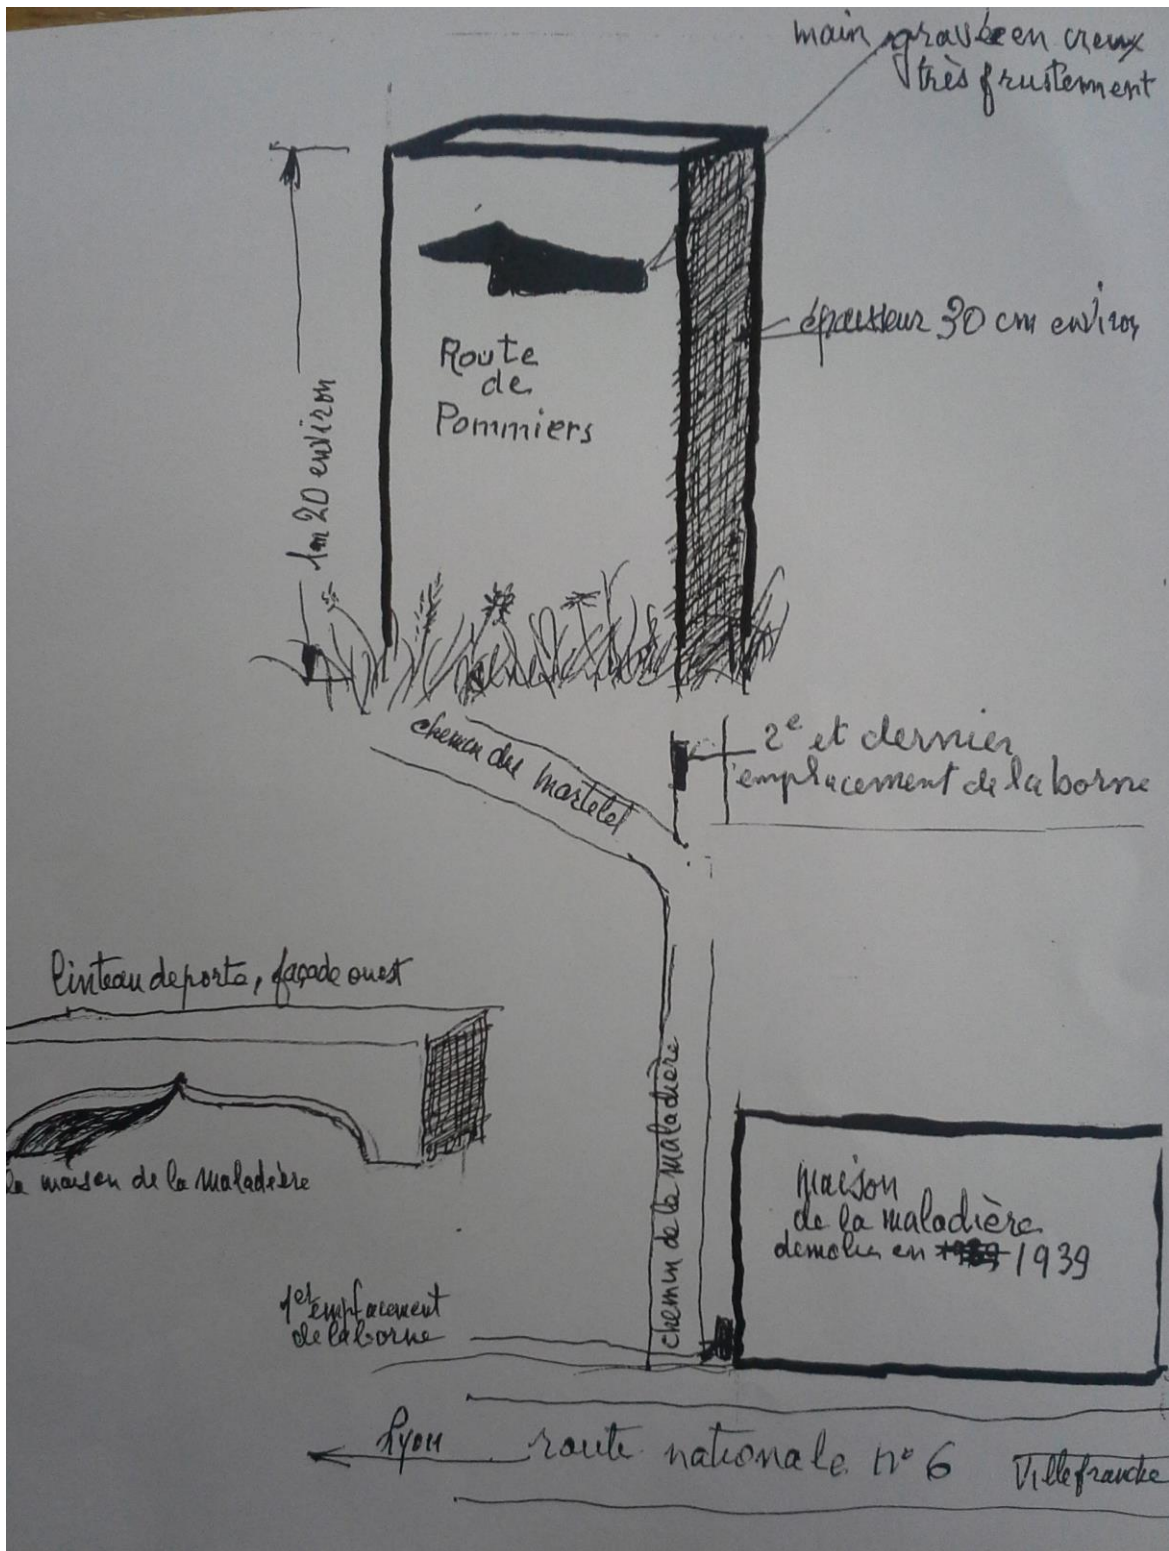 main gravée en creux
très frustement
épaisseur 30 cm environ
1m20 environ
Route
de
Pommiers
chemin du martelet
2e et dernier
emplacement de la borne
linteau de porte, façade ouest
la maison de la maladière
chemin de la maladière
maison
de la maladière
demolie en 1939
1er emplacement
de la borne
Lyon
route nationale n° 6
Villefranche